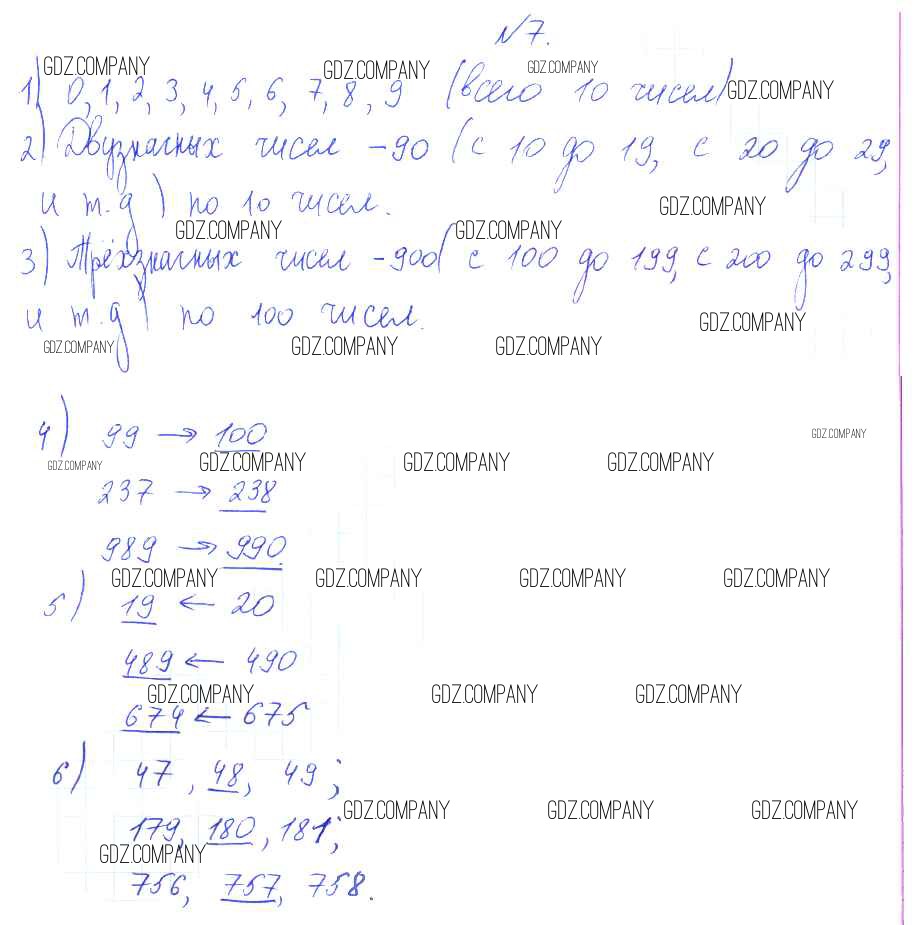 №7.
GDZ.COMPANY GDZ.COMPANY GDZ.COMPANY
1) 0, 1, 2, 3, 4, 5, 6, 7, 8, 9 (всего 10 чисел) GDZ.COMPANY
2) Двузначных чисел - 90 (с 10 до 19, с 20 до 29,
и т.д) по 10 чисел. GDZ.COMPANY
GDZ.COMPANY GDZ.COMPANY
3) Трёхзначных чисел - 900( с 100 до 199, с 200 до 299,
и т.д) по 100 чисел. GDZ.COMPANY
GDZ.COMPANY GDZ.COMPANY GDZ.COMPANY
4) 99 → 100 GDZ.COMPANY
GDZ.COMPANY GDZ.COMPANY GDZ.COMPANY GDZ.COMPANY
237 → 238
989 → 990.
GDZ.COMPANY GDZ.COMPANY GDZ.COMPANY GDZ.COMPANY
5) 19 ← 20
489 ← 490
GDZ.COMPANY GDZ.COMPANY GDZ.COMPANY
674 ← 675
6) 47, 48, 49;
GDZ.COMPANY GDZ.COMPANY GDZ.COMPANY
179, 180, 181;
GDZ.COMPANY
756, 757, 758.